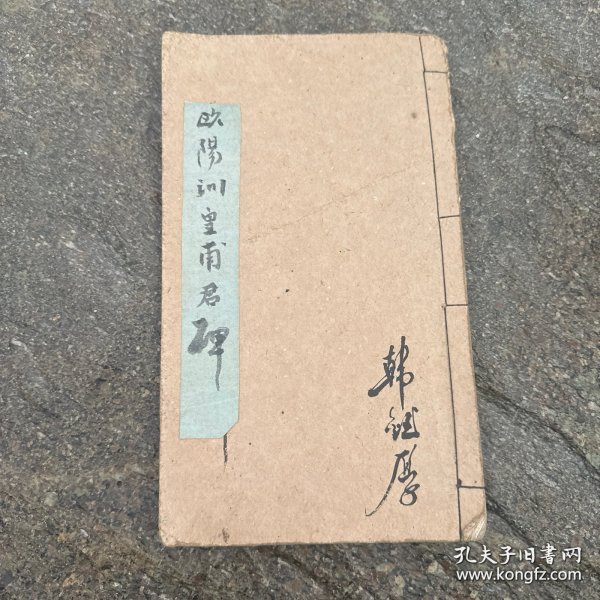 欧陽训皇甫君碑
韩厚
孔夫子旧書网
www.kongfz.com